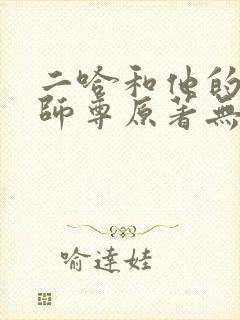 二哈和他的
師尊原著無
喻達娃